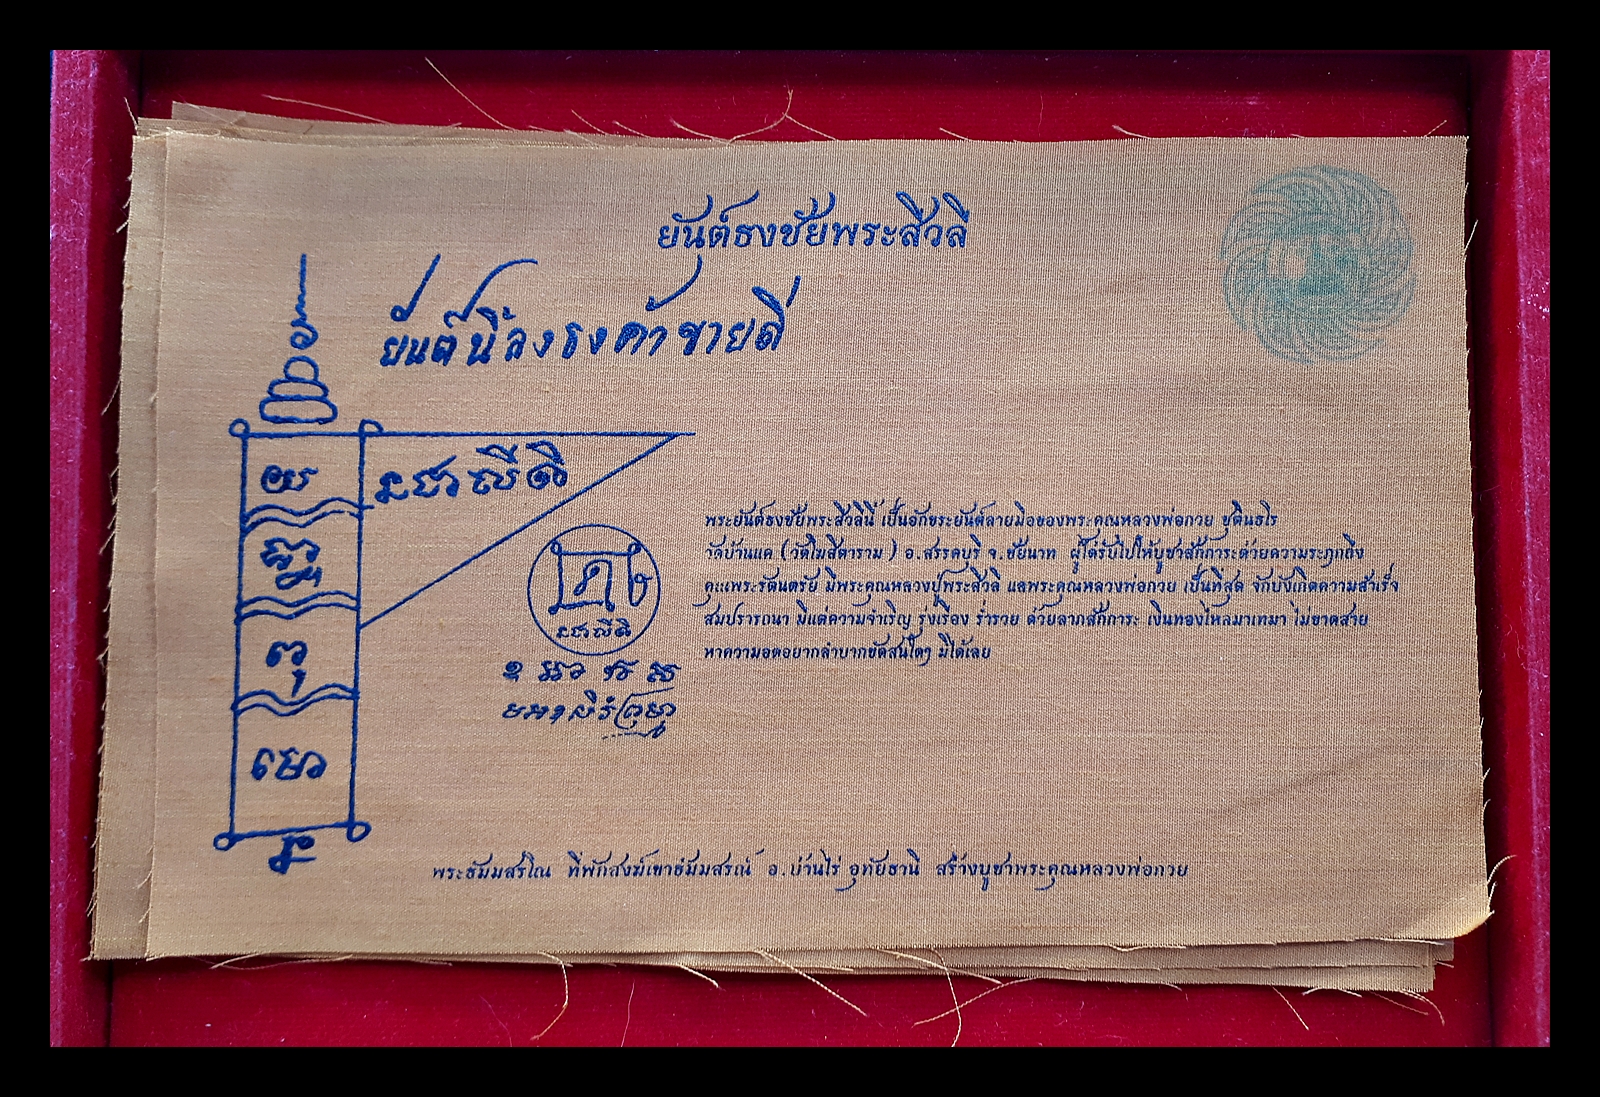 ยันต์ธงชัยพระสีวลี
ยันต์นี้ลงธงค้าขายดี
พระยันต์ธงชัยพระสีวลีนี้ เป็นอักขระยันต์ลายมือของพระคุณหลวงพ่อกวย ชุตินธโร
วัดบ้านแค (วัดโฆสิตาราม) อ.สรรคบุรี จ.ชัยนาท ผู้ได้รับไปให้บูชาสักการะด้วยความระฦกถึง
คุณพระรัตนตรัย มีพระคุณหลวงปู่พระสีวลี แลพระคุณหลวงพ่อกวย เป็นที่สุด จักบังเกิดความสำเร็จ
สมปรารถนา มีแต่ความจำเริญ รุ่งเรือง ร่ำรวย ด้วยลาภสักการะ เงินทองไหลมาเทมา ไม่ขาดสาย
หาความอดอยากลำบากขัดสนใดๆ มิได้เลย
พระธัมมสรโณ ที่พักสงฆ์เขาธัมมสรณ์ อ.บ้านไร่ อุทัยธานี สร้างบูชาพระคุณหลวงพ่อกวย